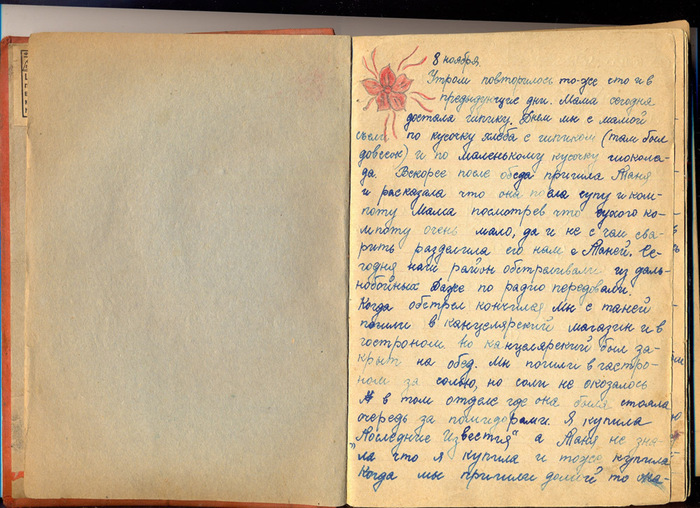 8 ноября
Утром повторилось то-же что и в
предидующие дни. Мама сегодня
достала Днем мы с мамой
съели по кусочку хлеба с (там был
довесок) и по маленькому кусочку шокола-
да. Вскорее после обеда пришла Таня
и расказала что она поела супу и ком-
поту Мама посмотрев что сухого ко-
мпоту очень мало, да и не с чем сва-
рить разделила его нам с Таней. Се-
годня наш район обстреливали из даль-
нобойных Даже по радио передовали
Когда обстрел кончился мы с таней
пошли в канцелярский магазин и в
гостроном но канцелярский был за-
крыт на обед. Мы пошли в гастро-
ном за солью, но соли не оказалось
А в том отделе где она была стояла
очередь за помидорами. Я купила
„Последние Известия" а Таня не зна-
ла что я купила и тоже купила
Когда мы пришли домой то она-